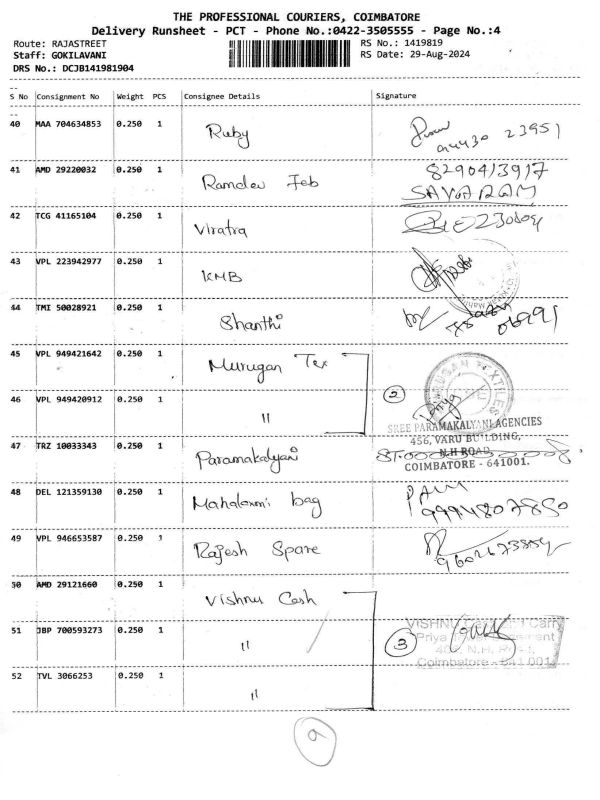 THE PROFESSIONAL COURIERS, COIMBATORE
Delivery Runsheet - PCT - Phone No.:0422-3505555 - Page No.:4
Route: RAJASTREET RS No.: 1419819
Staff: GOKILAVANI RS Date: 29-Aug-2024
DRS No.: DCJB141981904
S No Consignment No Weight PCS Consignee Details Signature
40 MAA 704634853 0.250 1 Ruby
41 AMD 29220032 0.250 1 Ramdev Feb
SAVARAM
42 TCG 41165104 0.250 1 Viratra
43 VPL 223942977 0.250 1 KMB
44 TMI 50028921 0.250 1 Shanthi
45 VPL 949421642 0.250 1 Murugan Tex
46 VPL 949420912 0.250 1 " 2
MURUGAN TEXTILES
SREE PARAMAKALYANI AGENCIES
456, VARU BUILDING,
N.H ROAD
COIMBATORE - 641001.
47 TRZ 10033343 0.250 1 Paramakalyani
48 DEL 121359130 0.250 1 Mahalaxmi bag
49 VPL 946653587 0.250 1 Rajesh Spare
50 AMD 29121660 0.250 1 Vishnu Cash
51 JBP 700593273 0.250 1 " 3
VISHNU Carry
Priya
Coimbatore - 641 001
52 TVL 3066253 0.250 1 "
a